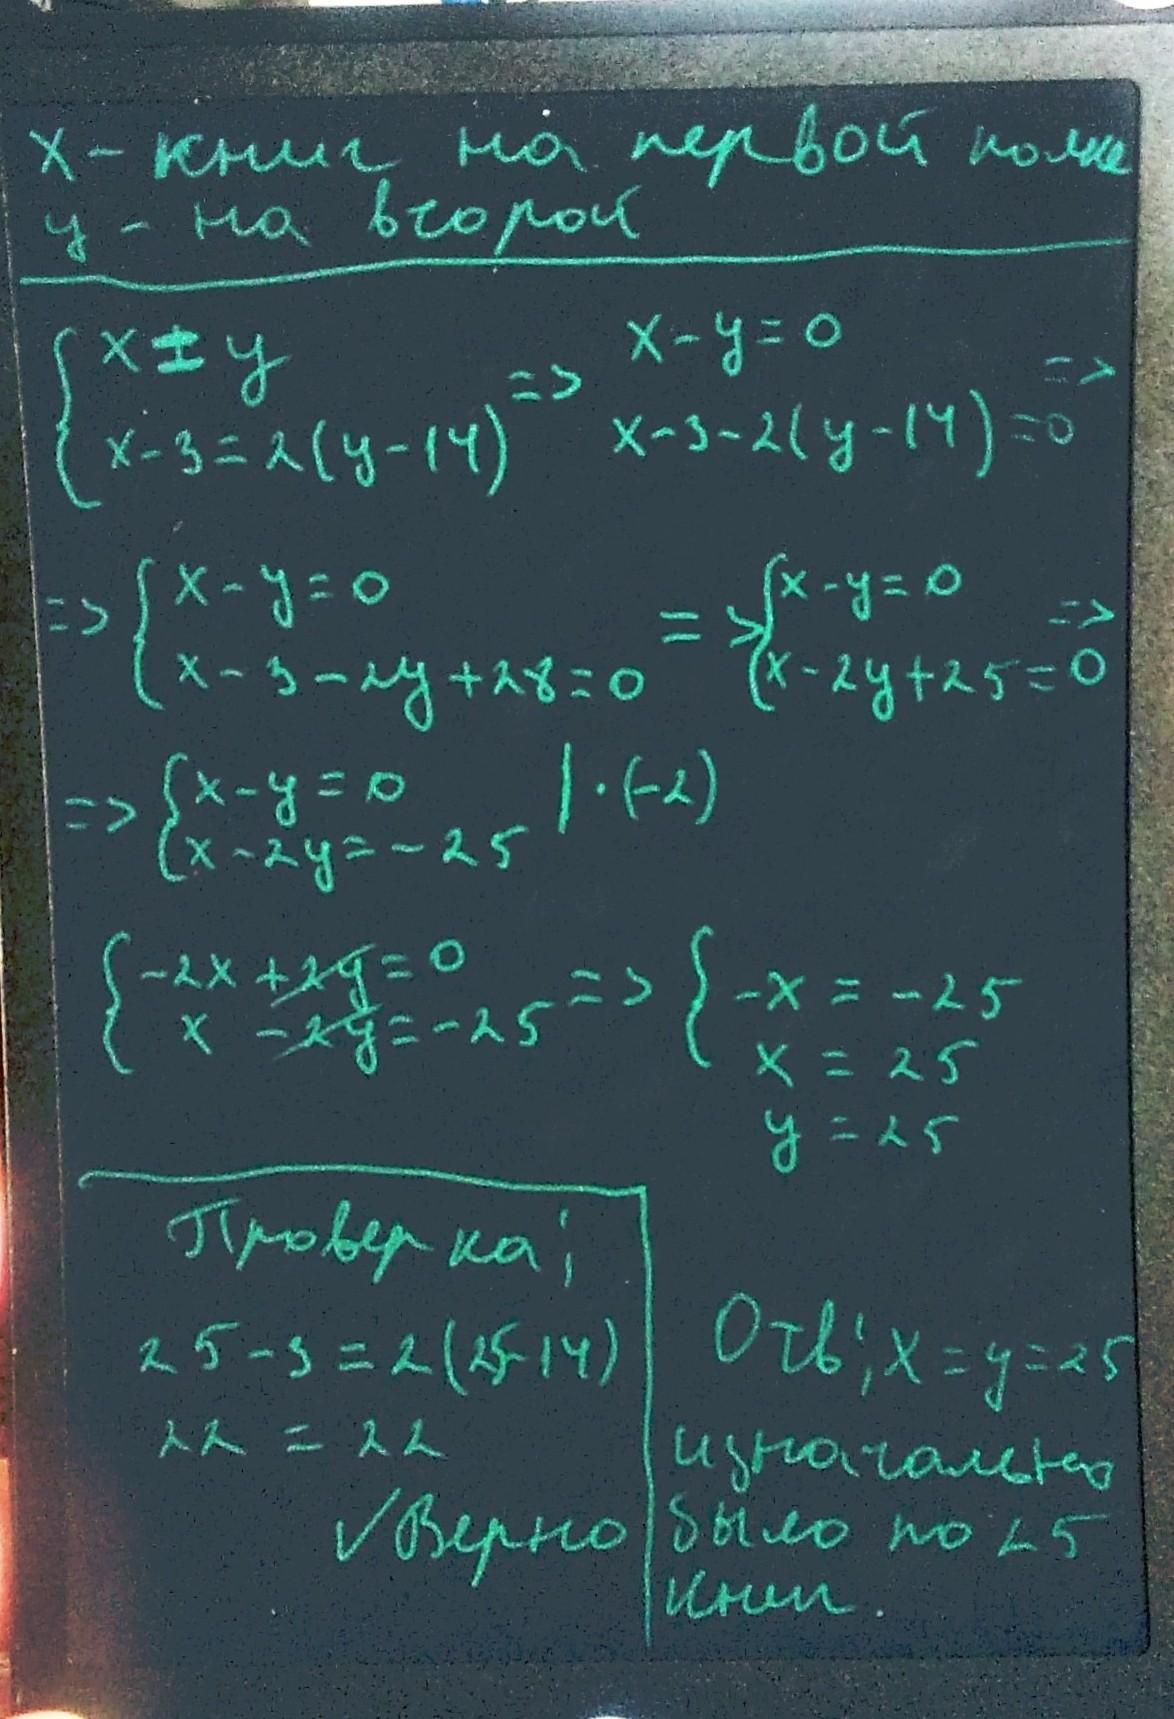 x - книг на первой полке
y - на второй
{ x = y => x - y = 0
x - 3 = 2(y - 14) x - 3 - 2(y - 14) = 0 =>
=> { x - y = 0 => { x - y = 0 =>
x - 3 - 2y + 28 = 0 x - 2y + 25 = 0
=> { x - y = 0 | · (-2)
x - 2y = -25
{ -2x + 2y = 0 => { -x = -25
x - 2y = -25
x = 25
y = 25
Проверка:
25 - 3 = 2(25-14)
22 = 22
✓ Верно
Отв: x = y = 25
изначально
было по 25
книг.